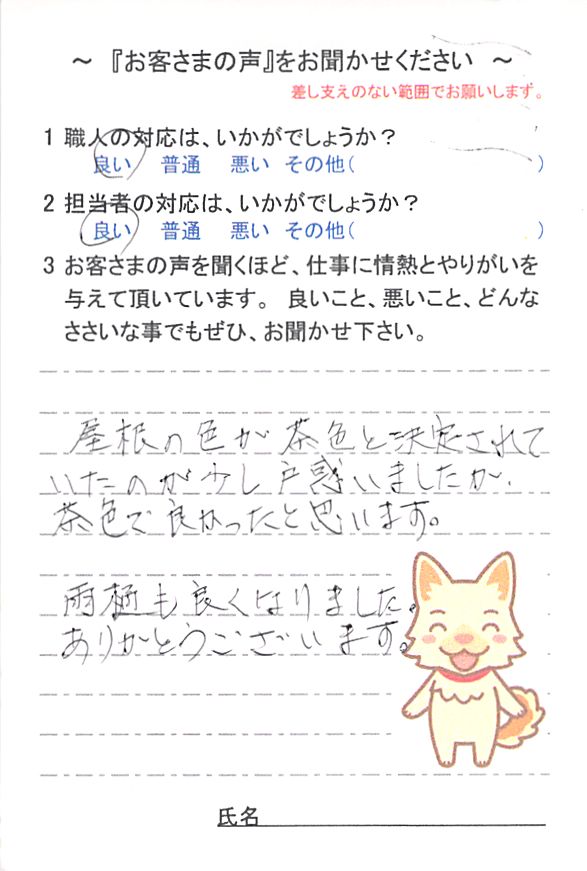 ～『お客さまの声』をお聞かせください～
差し支えのない範囲でお願いします。
1 職人の対応は、いかがでしょうか？
良い 普通 悪い その他( )
2 担当者の対応は、いかがでしょうか？
良い 普通 悪い その他( )
3 お客さまの声を聞くほど、仕事に情熱とやりがいを
与えて頂いています。 良いこと、悪いこと、どんな
ささいな事でもぜひ、お聞かせ下さい。
屋根の色が茶色と決定されて
いたのが少し戸惑いましたが、
茶色で良かったと思います。
雨樋も良くなりました。
ありがとうございます。
氏名